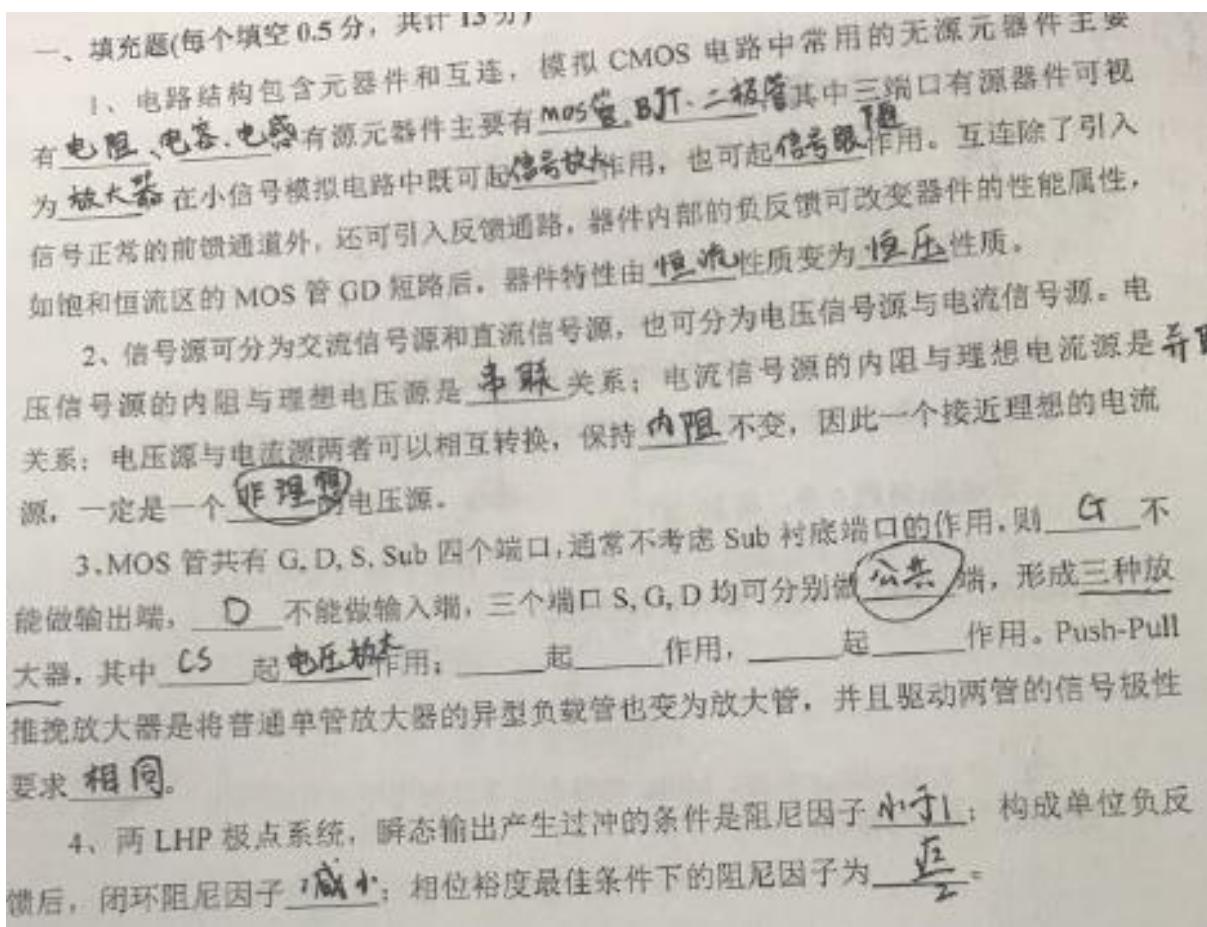 一、填充题(每个填空 0.5 分，共计 13 分)
1、电路结构包含元器件和互连，模拟 CMOS 电路中常用的无源元器件主要
有 电阻、电容、电感 有源元器件主要有 MOS管、BJT、二极管 其中三端口有源器件可视
为 放大器 在小信号模拟电路中既可起 信号放大 作用，也可起 信号跟随 作用。互连除了引入
信号正常的前馈通道外，还可引入反馈通路，器件内部的负反馈可改变器件的性能属性，
如饱和恒流区的 MOS 管 GD 短路后，器件特性由 恒流 性质变为 恒压 性质。
2、信号源可分为交流信号源和直流信号源，也可分为电压信号源与电流信号源。电
压信号源的内阻与理想电压源是 串联 关系；电流信号源的内阻与理想电流源是 并联
关系；电压源与电流源两者可以相互转换，保持 内阻 不变，因此一个接近理想的电流
源，一定是一个 非理想 的电压源。
3.MOS 管共有 G, D, S, Sub 四个端口,通常不考虑 Sub 衬底端口的作用,则 G 不
能做输出端， D 不能做输入端，三个端口 S, G, D 均可分别做 公共 端，形成三种放
大器，其中 CS 起 电压放大 作用；______起______作用，______起______作用。Push-Pull
推挽放大器是将普通单管放大器的异型负载管也变为放大管，并且驱动两管的信号极性
要求 相同。
4、两 LHP 极点系统，瞬态输出产生过冲的条件是阻尼因子 小于1；构成单位负反
馈后，闭环阻尼因子 减小；相位裕度最佳条件下的阻尼因子为 √2/2。